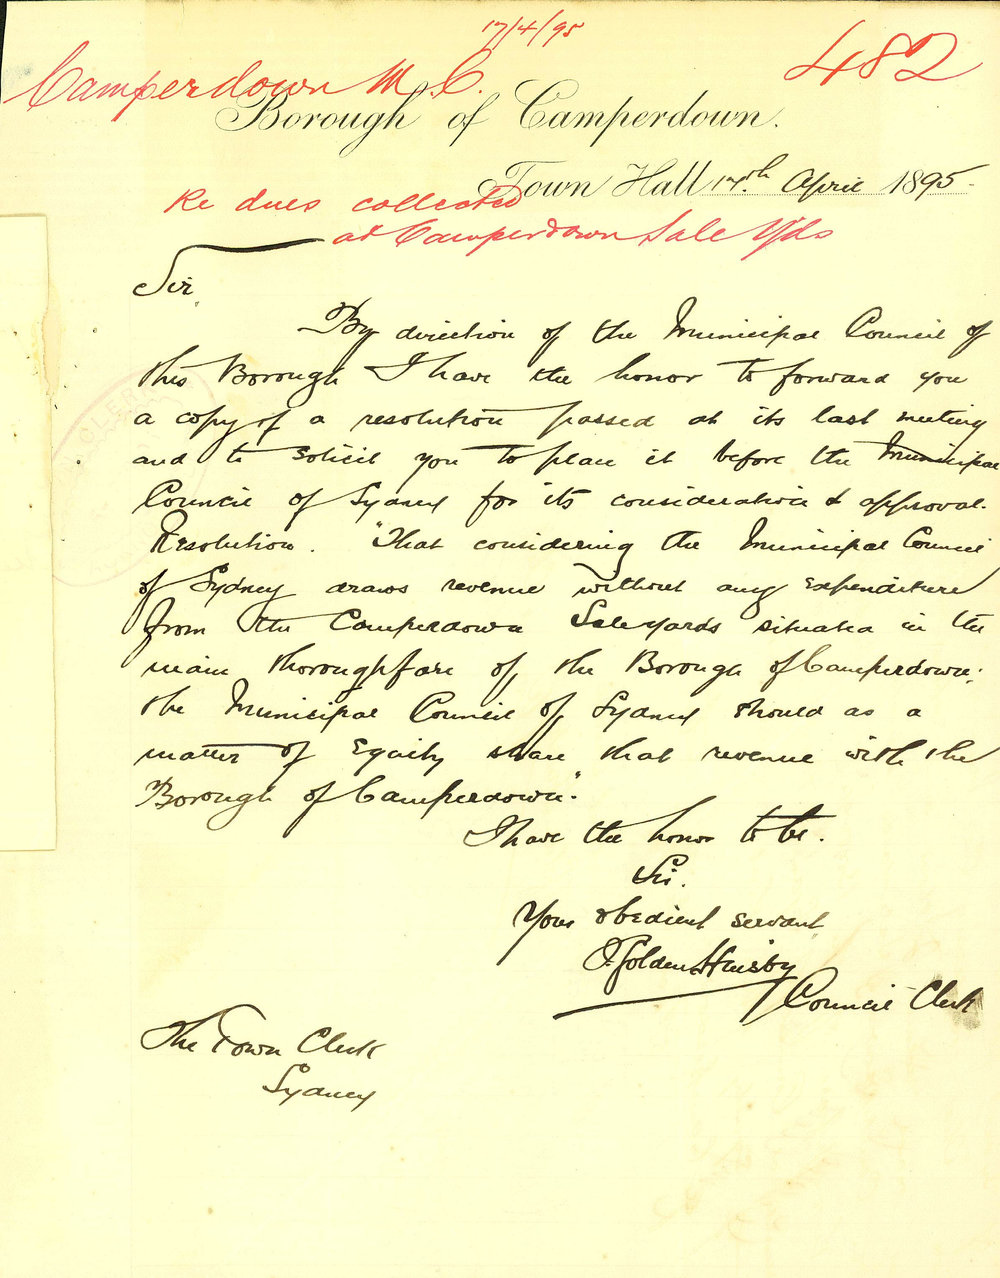 17/4/95
Camperdown M.C.
482
Borough of Camperdown.
Town Hall 17th April 1895
Re dues collected
at Camperdown Sale Yds
Sir,
By direction of the Municipal Council of
this Borough I have the honor to forward you
a copy of a resolution passed at its last meeting
and to solicit you to place it before the Municipal
Council of Sydney for its consideration & approval.
Resolution. "That considering the Municipal Council
of Sydney draws revenue without any expenditure
from the Camperdown Saleyards situated in the
main thoroughfare of the Borough of Camperdown;
the Municipal Council of Sydney should as a
matter of Equity share that revenue with the
Borough of Camperdown."
I have the honor to be.
Sir.
Your obedient servant
Golden
Council Clerk
The Town Clerk
Sydney
CLERK